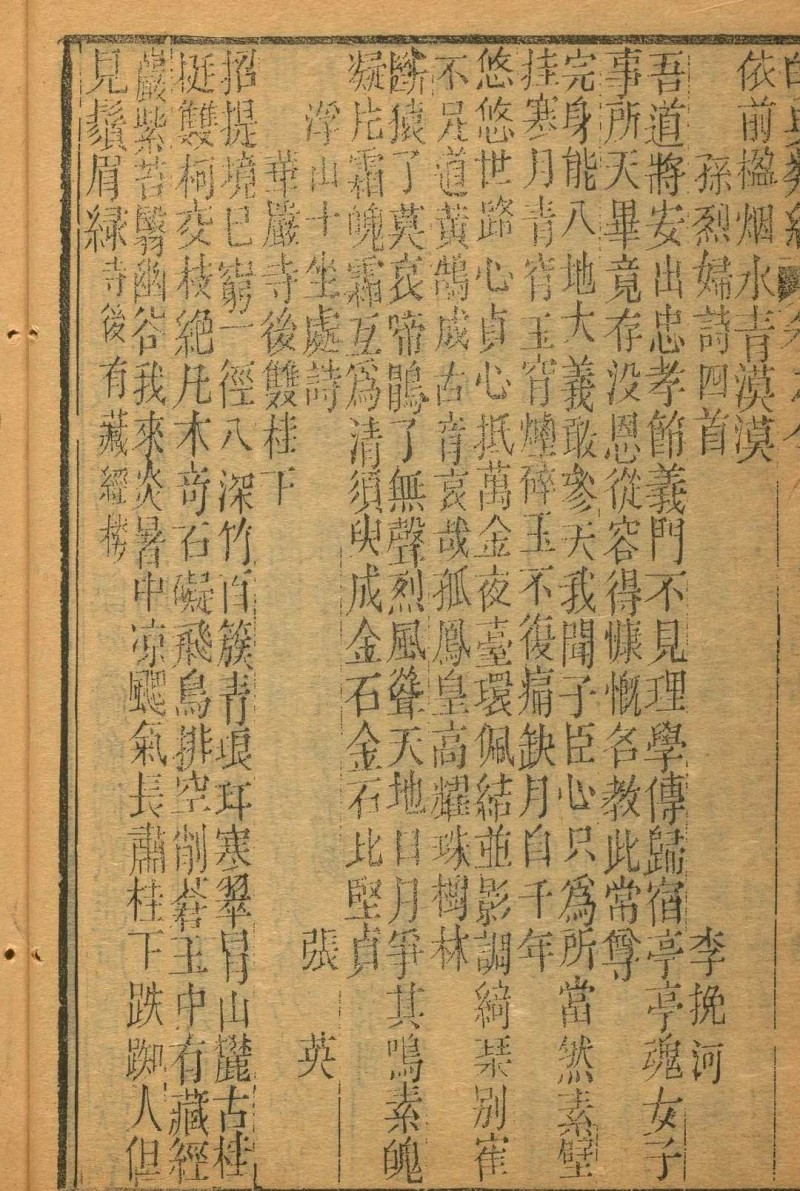 依前楹烟水青漠漠
孫烈婦詩四首 李挽河
吾道將安出忠孝節義門不見理學傳歸宿亭亭魂女子
事所天畢竟存没恩從容得慷慨各教此常尊
完身能八地大義敢參天我聞子臣心只為所當然素壁
挂寒月青宵玉宵煙碎玉不復痛缺月自千年
悠悠世路心貞心抵萬金夜臺環佩結並影調綺琹别寉
不足道黄鵠成古音哀哉孤鳳皇高耀珠樹林
斷猿了莫哀啼鵑了無聲烈風聳天地日月爭其鳴素魄
凝片霜魄霜互爲清須臾成金石金石比堅貞
浮山十坐處詩 張英
華嚴寺後雙桂下
招提境巳窮一徑八深竹百簇青琅玕寒翠冒山麓古桂
挺雙柯交枝絶凡木竒石礙飛鳥排空削蒼玉中有藏經
巖紫苔翳幽谷我來炎暑中凉颸氣長肅桂下趺跏人但
見鬚眉緑寺後有藏經楼